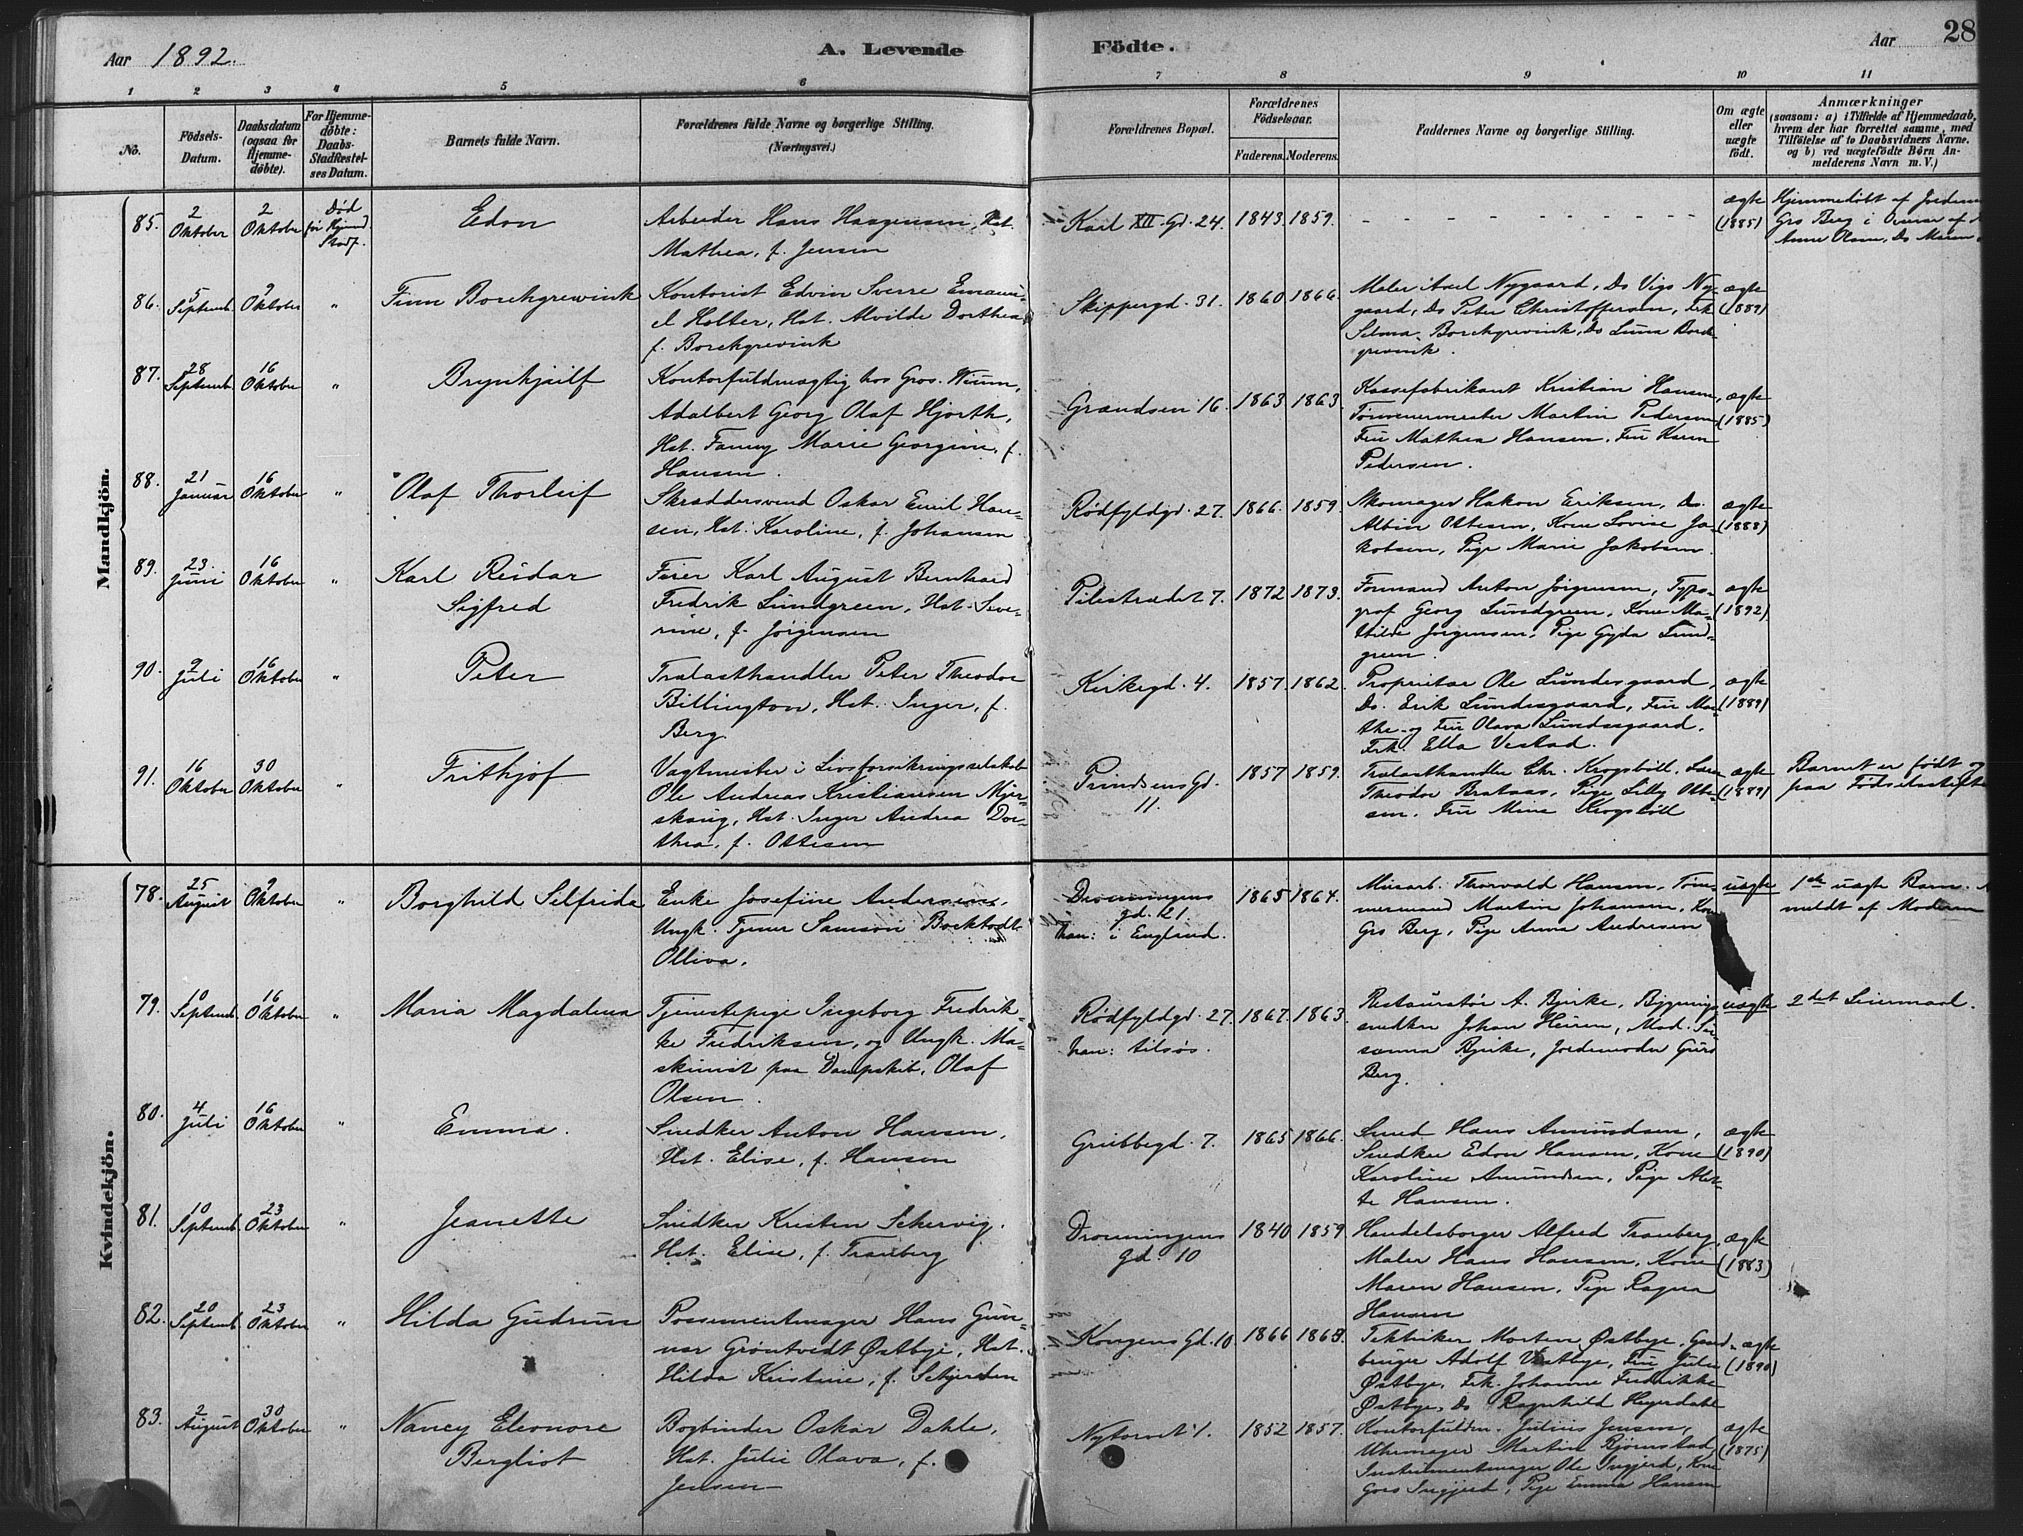 Aar 1892.
A. Levende
Födte.
Aar
28
1 2 3 4 5 6 7 8 9 10 11
No.
Födsels-
Datum.
Daabsdatum
(ogsaa for
Hjemme-
döbte).
For Hjemme-
döbte:
Daabs-
Stadfæstel-
ses Datum.
Barnets fulde Navn.
Forældrenes fulde Navne og borgerlige Stilling.
(Næringsvei.)
Forældrenes Bopæl.
Forældrenes
Födselsaar.
Faderens.
Moderens.
Faddernes Navne og borgerlige Stilling.
Om ægte
eller
uægte
födt.
Anmærkninger
(saasom: a) i Tilfælde af Hjemmedaab,
hvem der har forrettet samme, med
Tilföielse af to Daabsvidners Navne.
og b) ved uægtefödte Börn An-
melderens Navn m. V.)
Mandkjön.
85.
2 Oktober
2 Oktober
Død
før Hjemd.
Stadf.
Edon
Arbeider Hans Haagensen, Hst.
Mathea, f. Jensen
Karl XII Gd. 24.
1843. 1859.
- - - - - - - - - -
ægte
(1885)
Hjemmedøbt af Jordem
Grs Berg i Overvær af
Anne Olsen, Do Maren
86.
5 Septemb.
9 Oktober
"
Finn Borchgrevink
Kontorist Edvin Sverre Emanu-
el Holter, Hst. Alvilde Dorthea
f. Borchgrevink
Skippergd. 31.
1860 1866.
Maler Axel Nygaard, Do Vigo Ny-
gaard, Do Peter Christoffersen, Frk
Selma Borchgrevink, Do Luma Borch
grevink.
ægte
(1889)
87.
28 Septemb.
16 Oktober
"
Brynhjulf
Kontorfuldmægtig hos Gros. Wium,
Adalbert Georg Olaf Hjorth,
Hst. Fanny Marie Georgine, f.
Hansen.
Grændsen 16.
1863 1863.
Kassefabrikant Kristian Hansen,
Tømmermester Martin Pedersen
Fru Mathea Hansen, Fru Karen
Pedersen.
ægte
(1885)
88.
21 Januar
16 Oktober
"
Olaf Thorleif
Skræddersvend Oskar Emil Han-
sen, Hst. Karoline, f. Johansen
Rødfyldgd. 27.
1866. 1859.
Skomager Hakon Eriksen, Do.
Albin Ottesen, Kone Lovise Ja-
kobsen, Pige Marie Jakobsen.
ægte
(1888)
89.
23. Juni
16 Oktober
"
Karl Reidar
Sigfred
Feier Karl August Bernhard
Fredrik Lundgreen, Hst. Seve-
rine, f. Jørgensen
Pilestrædet 7.
1872 1873.
Formand Anton Jørgensen, Typo-
graf Georg Lundgreen, Kone Ma-
thilde Jørgensen, Pige Gyda Lund-
green.
ægte
(1892)
90.
9 Juli
16 Oktober
"
Peter
Trælasthandler Peter Theodor
Billington, Hst. Inger, f.
Berg.
Kirkegd. 4.
1857. 1862.
Proprietær Ole Lundesgaard,
Do. Erik Lundesgaard, Fru Mar-
the og Fru Olava Lundesgaard.
Frk. Ella Vestad.
ægte
(1889)
91.
16 Oktober
30 Oktober
"
Frithjof
Vagtmester i Livsforsikringsselskab
Ole Andreas Kristiansen Mjør-
skaug, Hst. Inger Andrea Dor-
thea, f. Ottesen
Prindsens Gd.
11.
1857 1859.
Trælasthandler Chr. Krogsbøll,
Theodor Brataas, Pige Lilly Otte-
sen. Fru Mina Krogsbøll
ægte
(1889)
Barnet er født og
paa Fødselsstifte
Kvindekjön.
78.
25 August
9 Oktober
"
Borghild Selfrida
Enke Josefine Andersen,
Ungk. Tjener Samson Bocktodt
Olliva.
Dronningens
gd. 21.
han: i England.
1865 1864.
Murarb. Thorvald Hansen, Tøm-
mermand Martin Johansen, Kone
Grs Berg, Pige Anna Andresen
uægte
1ste uægte Barn.
meldt af Moderen
79.
10 Septemb.
16 Oktober
"
Maria Magdalena
Tjenestepige Ingeborg Fredrik-
ke Fredriksen, og Ungk. Ma-
skinist paa Dampskib, Olaf
Olsen.
Rødfyldgd. 27.
han: tilsøs.
1867. 1863.
Restauratør A. Bjerke, Bygnings
snedker Johan Heiren, Mad. Su-
sanna Bjerke, Jordemoder Guro
Berg.
uægte
2det Leiermaal.
80.
4 Juli
16 Oktober
"
Emma.
Snedker Anton Hansen,
Hst. Elise, f. Hansen
Grubbegd. 7.
1865 1866.
Smed Hans Amundsen,
Snedker Edon Hansen, Kone
Karoline Amundsen, Pige Alet-
te Hansen.
ægte
(1890)
81.
10 Septemb.
23 Oktober
"
Jeanette
Snedker Kristen Schervig.
Hst. Elise, f. Tranberg
Dronningens
gd. 10
1840 1859
Handelsborger Alfred Tranberg,
Maler Hans Hansen, Kone
Maren Hansen, Pige Ragna
Hansen
ægte
(1883)
82.
20 Septemb.
23 Oktober
"
Hilda Gudrun
Possementmager Hans Gun-
nar Grøntvedt Østbye, Hst.
Hilda Kristine, f. Schjerden
Kongens Gd. 10.
1866 1863.
Tekniker Morten Østbye, Gaard-
bruger Adolf Vestbye, Fru Julie
Østbye, Frk. Johanne Fredrikke
Østbye, Do Ragnhild Heyerdahl
ægte
(1890)
83.
2 August
30 Oktober
"
Nancy Eleonore
Bergliot
Bogbinder Oskar Dahle,
Hst. Julie Olava, f.
Jensen
Nytorvet 1.
1852 1857.
Kontorfuldm. Julius Jensen,
Uhrmager Martin Bjørnstad,
Instrumentmager Ole Ingjerd, Kone
Goro Ingjerd, Pige Emma Hansen
ægte
(1875)